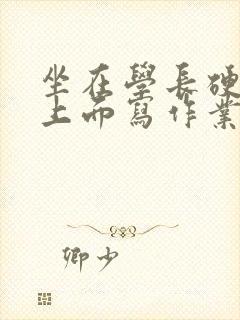 坐在學長硬
上而寫作業
卿少